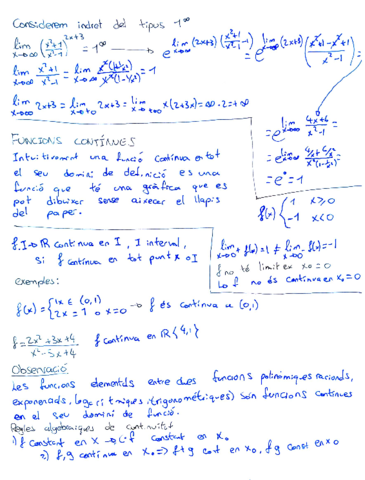 Considerem indret del tipus 1^∞
lim x→∞ (x²+1 / x²-1)^(2x+3) = 1^∞ → e^(lim x→∞ (2x+3)(x²+1 / x²-1 - 1)) = e^(lim x→∞ (2x+3)(x²+1-x²+1 / x²-1)) =
lim x→∞ x²+1 / x²-1 = lim x→∞ x²(1+1/x²) / x²(1-1/x²) = 1
lim x→∞ 2x+3 = lim x→+∞ 2x+3 = lim x→+∞ x(2+3/x) = ∞·2 = +∞
= e^(lim x→∞ 4x+6 / x²-1) =
= e^(lim x→∞ 4/x + 6/x² / x²(1-1/x²)) =
= e^0 = 1
FUNCIONS CONTÍNUES
Intuitivament una funció contínua en tot
el seu domini de definició es una
funció que té una gràfica que es
pot dibuixar sense aixecar el llapis
del paper.
f(x) { 1 x≥0
-1 x<0
f: I→ℝ contínua en I, I interval,
si f contínua en tot punt x0 I
lim x→0+ f(x)=1 ≠ lim x→0- f(x)=-1
f no té límit en x0=0
↳ f no és contínua en x0=0
Exemples:
f(x) = { 1 x ∈ (0,1)
2 x = 1 o x=0 → f és contínua a (0,1)
f = 2x²+3x+4 / x²-5x+4 f contínua en ℝ {4,1}
Observació
Les funcions elementals entre dues funcions polinòmiques racionals,
exponencials, logarítmiques i trigonomètriques) són funcions contínues
en el seu domini de funció.
Regles algebraiques de continuïtat
1) f constant en x → f constant en x0
2) f, g contínua en x0 => f+g cont en x0, f g const en x0